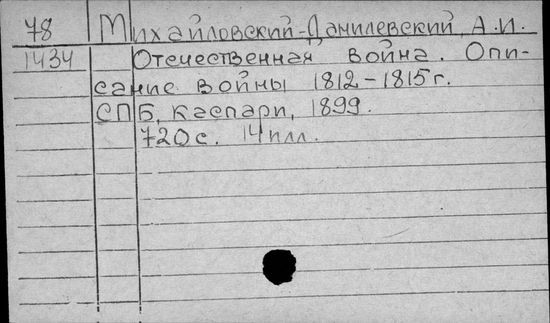 78 Михайловский-Данилевский, А.И.
1434 Отечественная война. Опи-
сание войны 1812-1815г.
СПБ, Каспари, 1899.
720с. 14илл.